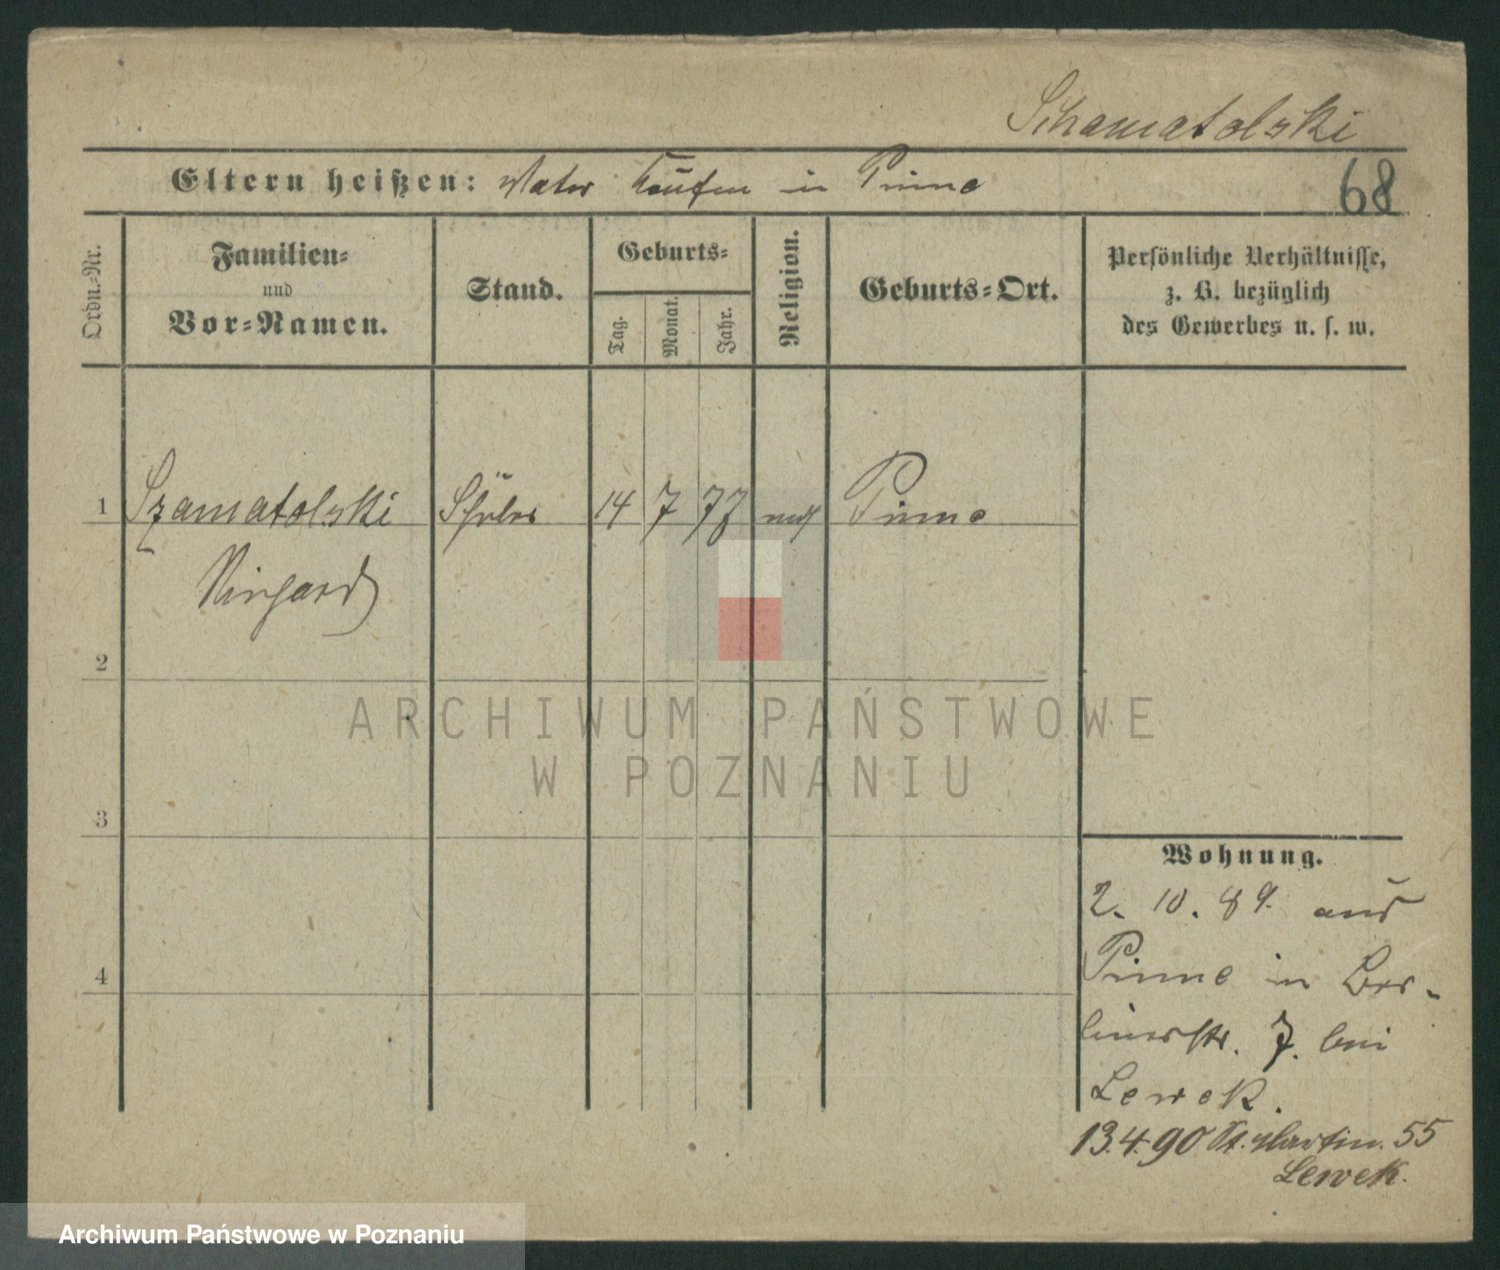 Schamatolski
Eltern heißen: Vater Kaufm in Pinne
68
Ordn.-Nr.
Familien-
und
Vor-Namen.
Stand.
Geburts-
Tag.
Monat.
Jahr.
Religion.
Geburts-Ort.
Persönliche Verhältnisse,
z. B. bezüglich
des Gewerbes u. s. w.
1 Szamatolski Schüler 14 7 77 mos Pinne
2
3
4
Wohnung.
2. 10. 89. aus
Pinne in Ber-
linerstr. 7. bei
Lewek.
13.4.90 St. Martin. 55
Lewek.
ARCHIWUM PAŃSTWOWE
W POZNANIU
Archiwum Państwowe w Poznaniu